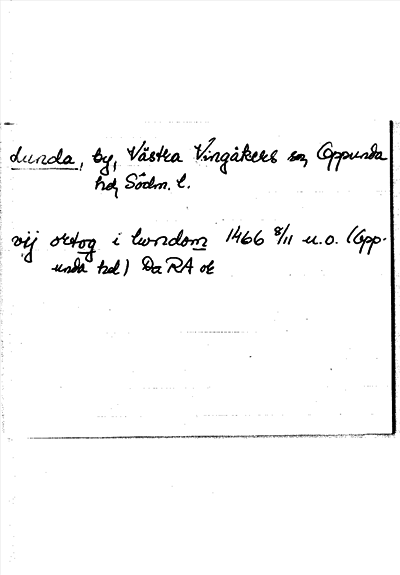 Lunda, by, Västra Vingåkers sn, Oppunda
hd, Södm. l.
vij ortog i lwndom 1466 8/11 u.o. (Opp-
unda hd) Da RA or